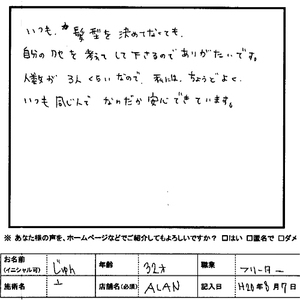 いつも、髪型を決めてなくても、
自分のクセを考えて して下さるのでありがたいです。
人数が3人くらいなので、私には、ちょうどよく、
いつも同じ人で なんだか安心できています。
※ あなた様の声を、ホームページなどでご紹介してもよろしいですか？ □はい □匿名で □ダメ
お名前（イニシャル可） じゅん 年齢 32才 職業 フリーター
施術名 店舗名(必須) ALAN 記入日 H20年8月9日